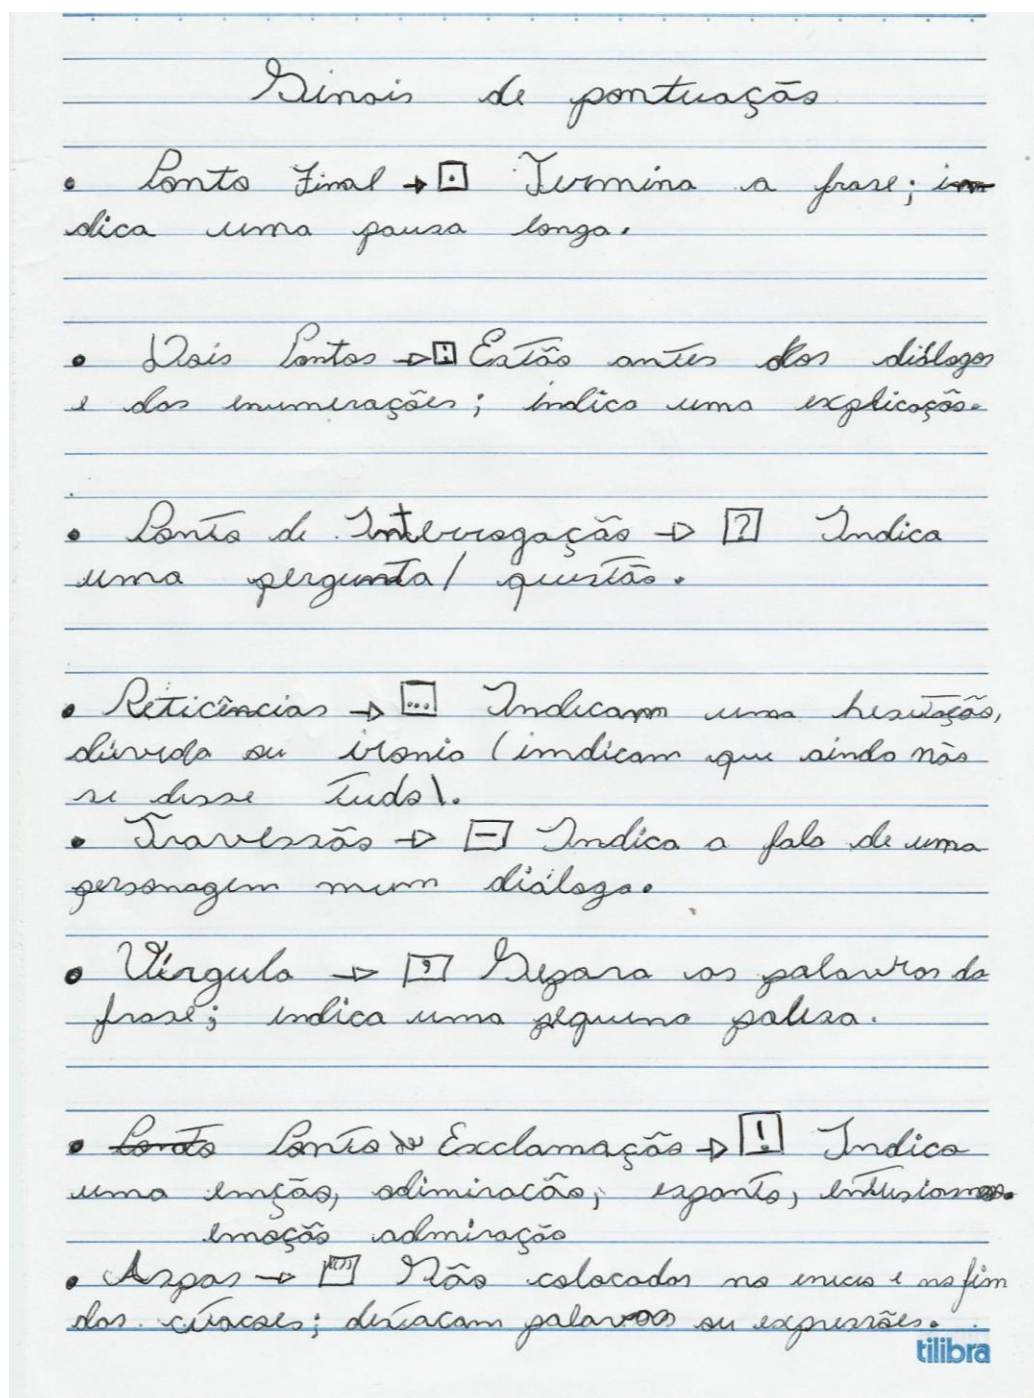 Sinais de pontuação
• Ponto Final → . Termina a frase; in
dica uma pausa longa.
• Dois Pontos → : Estão antes dos diálogos
e das enumerações; indica uma explicação.
• Ponto de Interrogação → ? Indica
uma pergunta/ questão.
• Reticências → ... Indicam uma hesitação,
dúvida ou ironia (indicam que ainda não
se disse tudo).
• Travessão → — Indica a fala de uma
personagem num diálogo.
• Vírgula → , Separa as palavras da
frase; indica uma pequena pausa.
• Ponto Ponto de Exclamação → ! Indica
uma emção, adimiracão, espanto, entusiasmo.
emoção admiração
• Aspas → "" São colocadas no inicio e no fim
das citacoes; destacam palavras ou expressões.
tilibra